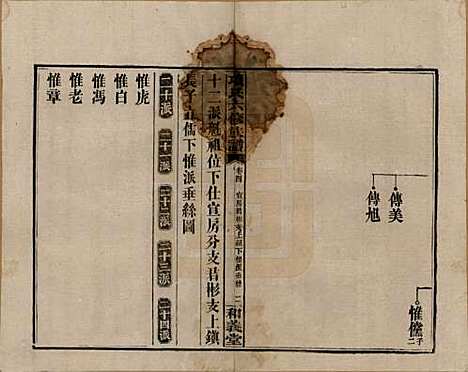 傳美
傳旭
惟儅
子二
六修族譜
卷四
和義堂
十二派魁祖位下仕宣房分支昌彬支上鎮
長子 儒下惟派垂絲圖
二十派
二十一派
二十二派
二十三派
二十四派
惟虎
惟白
惟馮
惟老
惟章